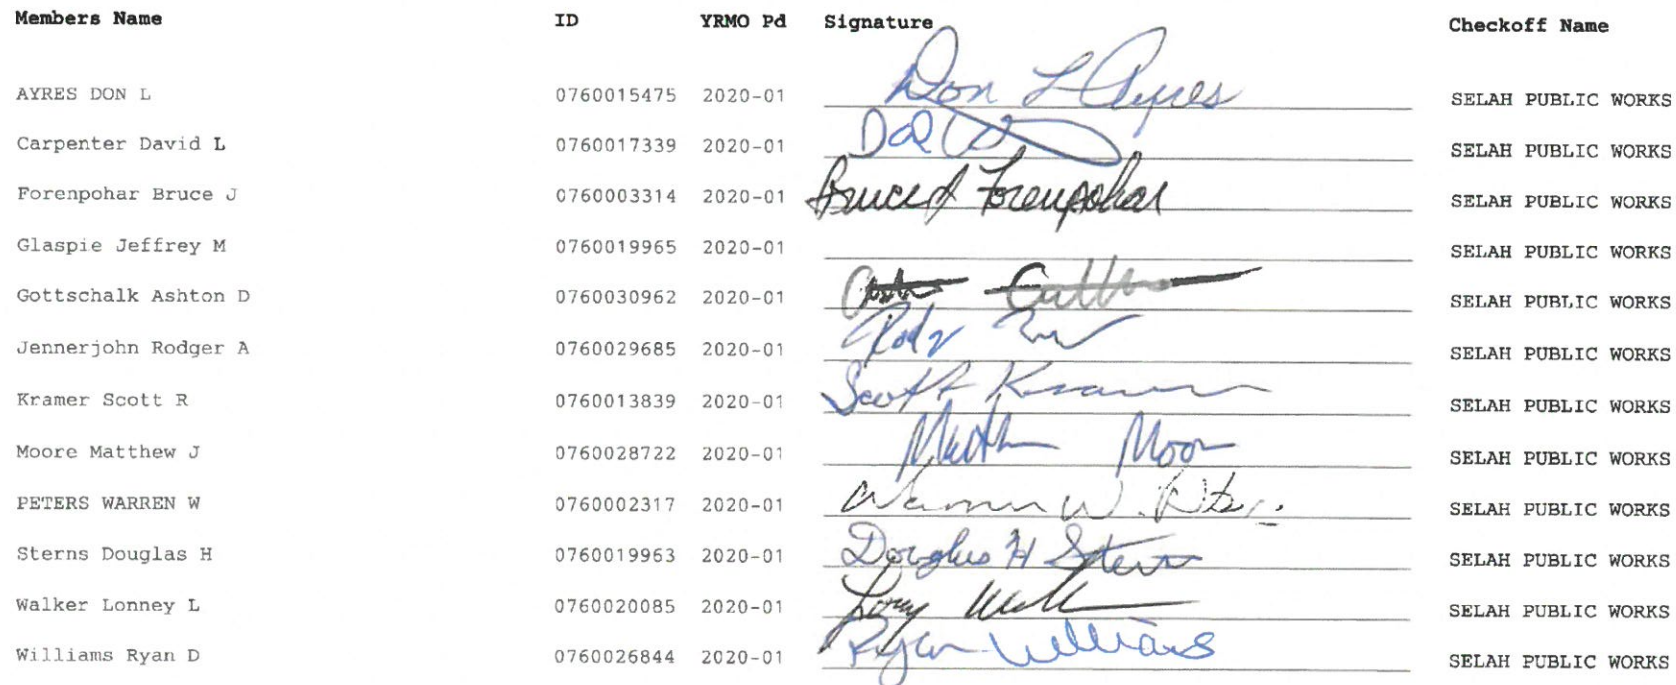 Members Name ID YRMO Pd Signature Checkoff Name
AYRES DON L 0760015475 2020-01 Don L Ayres SELAH PUBLIC WORKS
Carpenter David L 0760017339 2020-01 SELAH PUBLIC WORKS
Forenpohar Bruce J 0760003314 2020-01 Bruce J Forenpohar SELAH PUBLIC WORKS
Glaspie Jeffrey M 0760019965 2020-01 SELAH PUBLIC WORKS
Gottschalk Ashton D 0760030962 2020-01 SELAH PUBLIC WORKS
Jennerjohn Rodger A 0760029685 2020-01 SELAH PUBLIC WORKS
Kramer Scott R 0760013839 2020-01 Scott Kramer SELAH PUBLIC WORKS
Moore Matthew J 0760028722 2020-01 SELAH PUBLIC WORKS
PETERS WARREN W 0760002317 2020-01 Warren W. Peters SELAH PUBLIC WORKS
Sterns Douglas H 0760019963 2020-01 Douglas H Sterns SELAH PUBLIC WORKS
Walker Lonney L 0760020085 2020-01 SELAH PUBLIC WORKS
Williams Ryan D 0760026844 2020-01 Ryan Williams SELAH PUBLIC WORKS